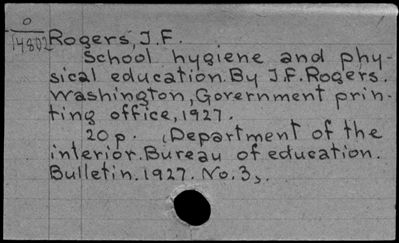 o
14802 Rogers, J.F.
School hygiene and phy-
sical education. By J.F. Rogers.
Washington, Government prin-
ting office, 1927.
20 p. (Department of the
interior. Bureau of education.
Bulletin. 1927. No. 3).